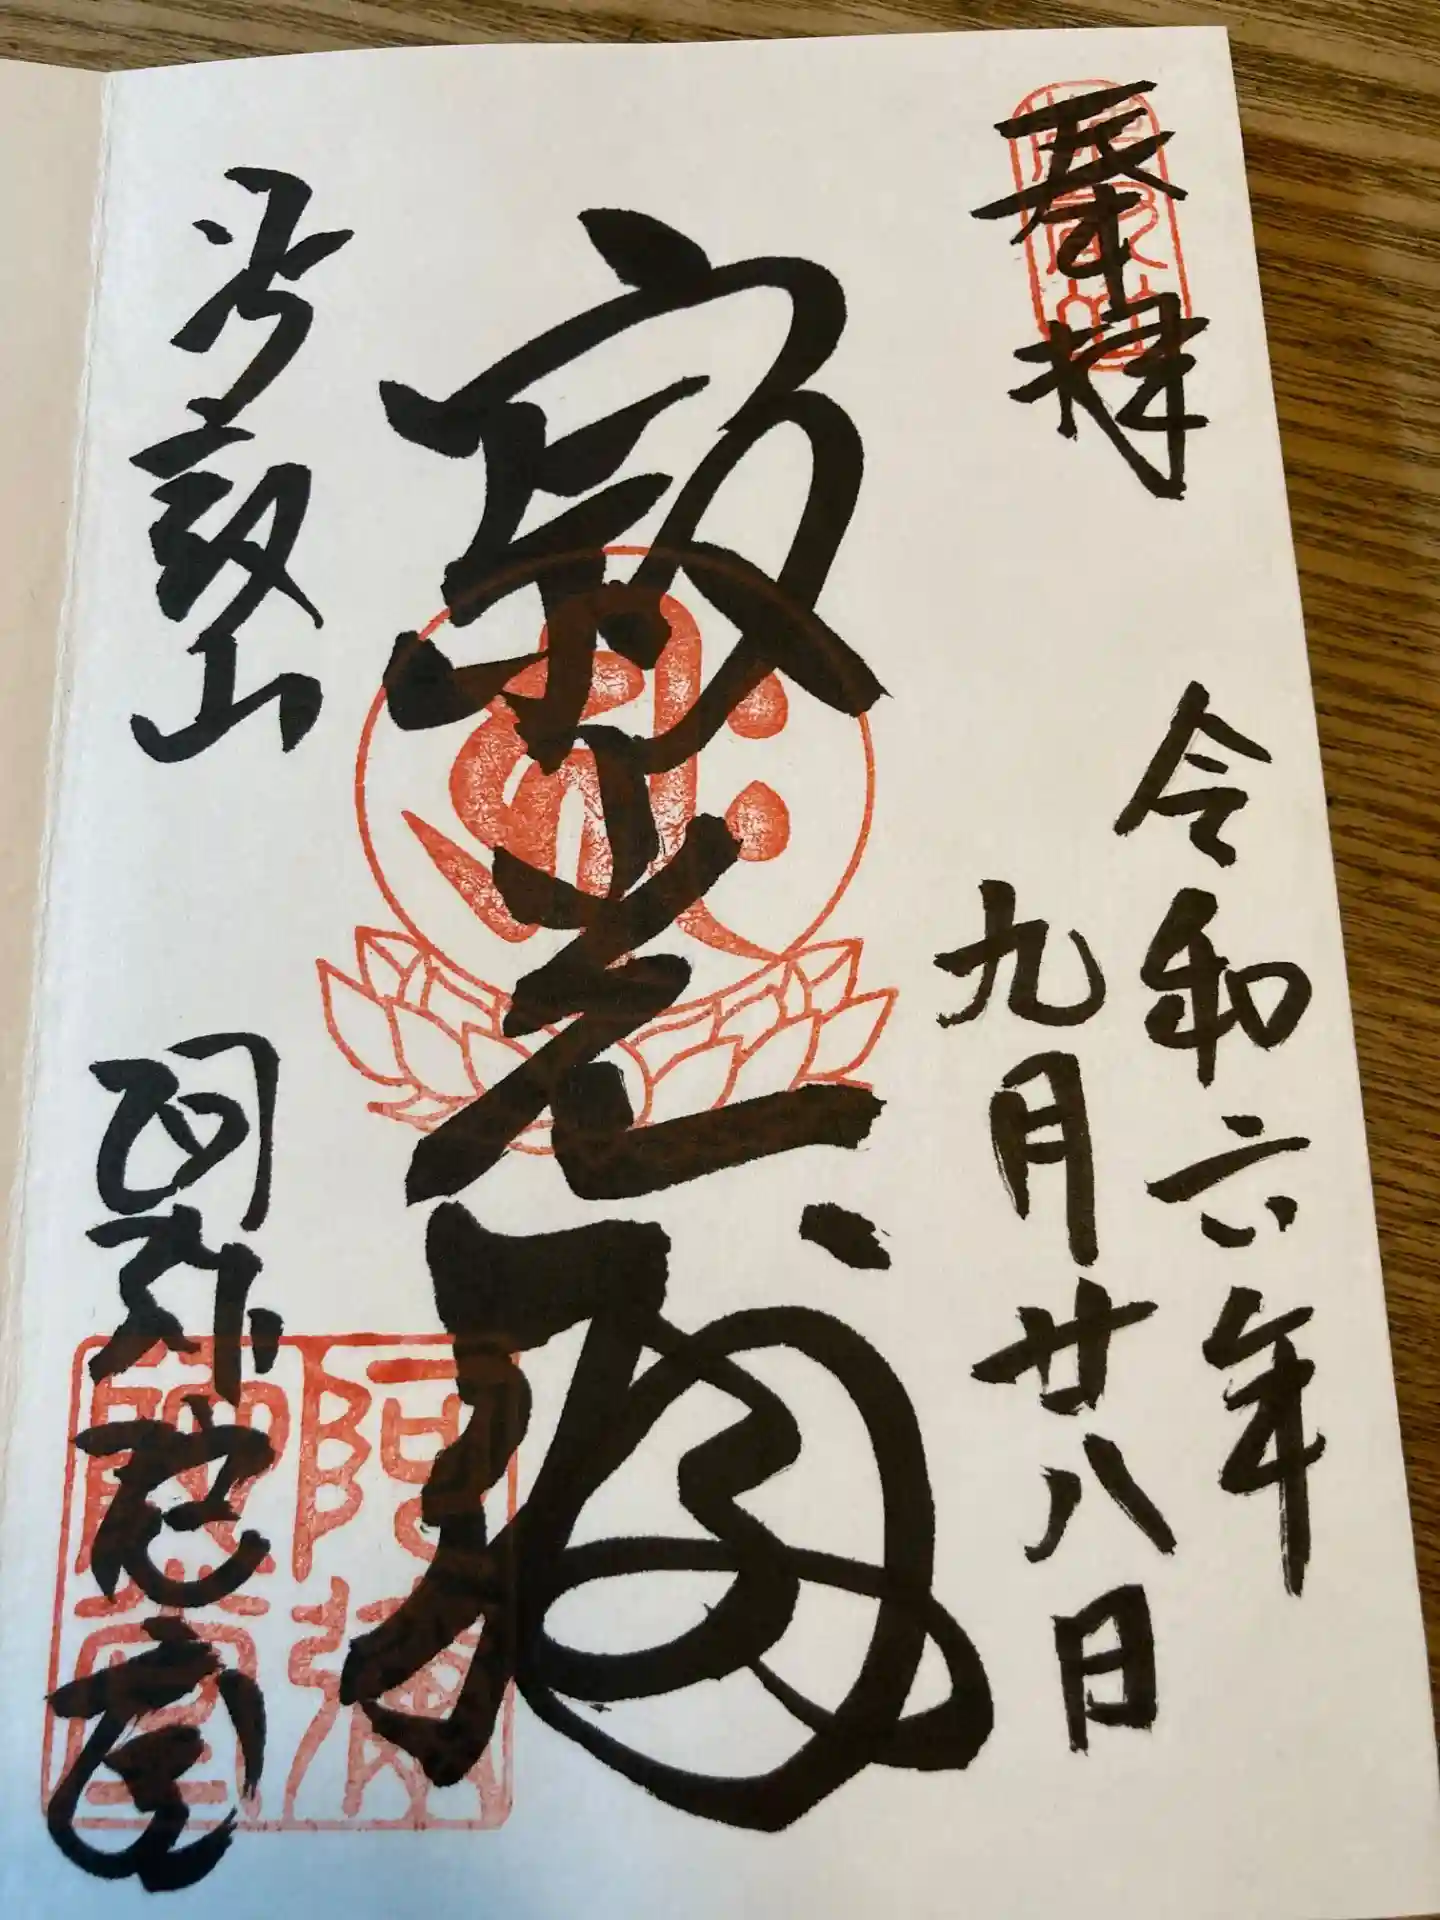 奉拝
令和六年
九月廿八日
寂光
比叡山
阿弥陀堂